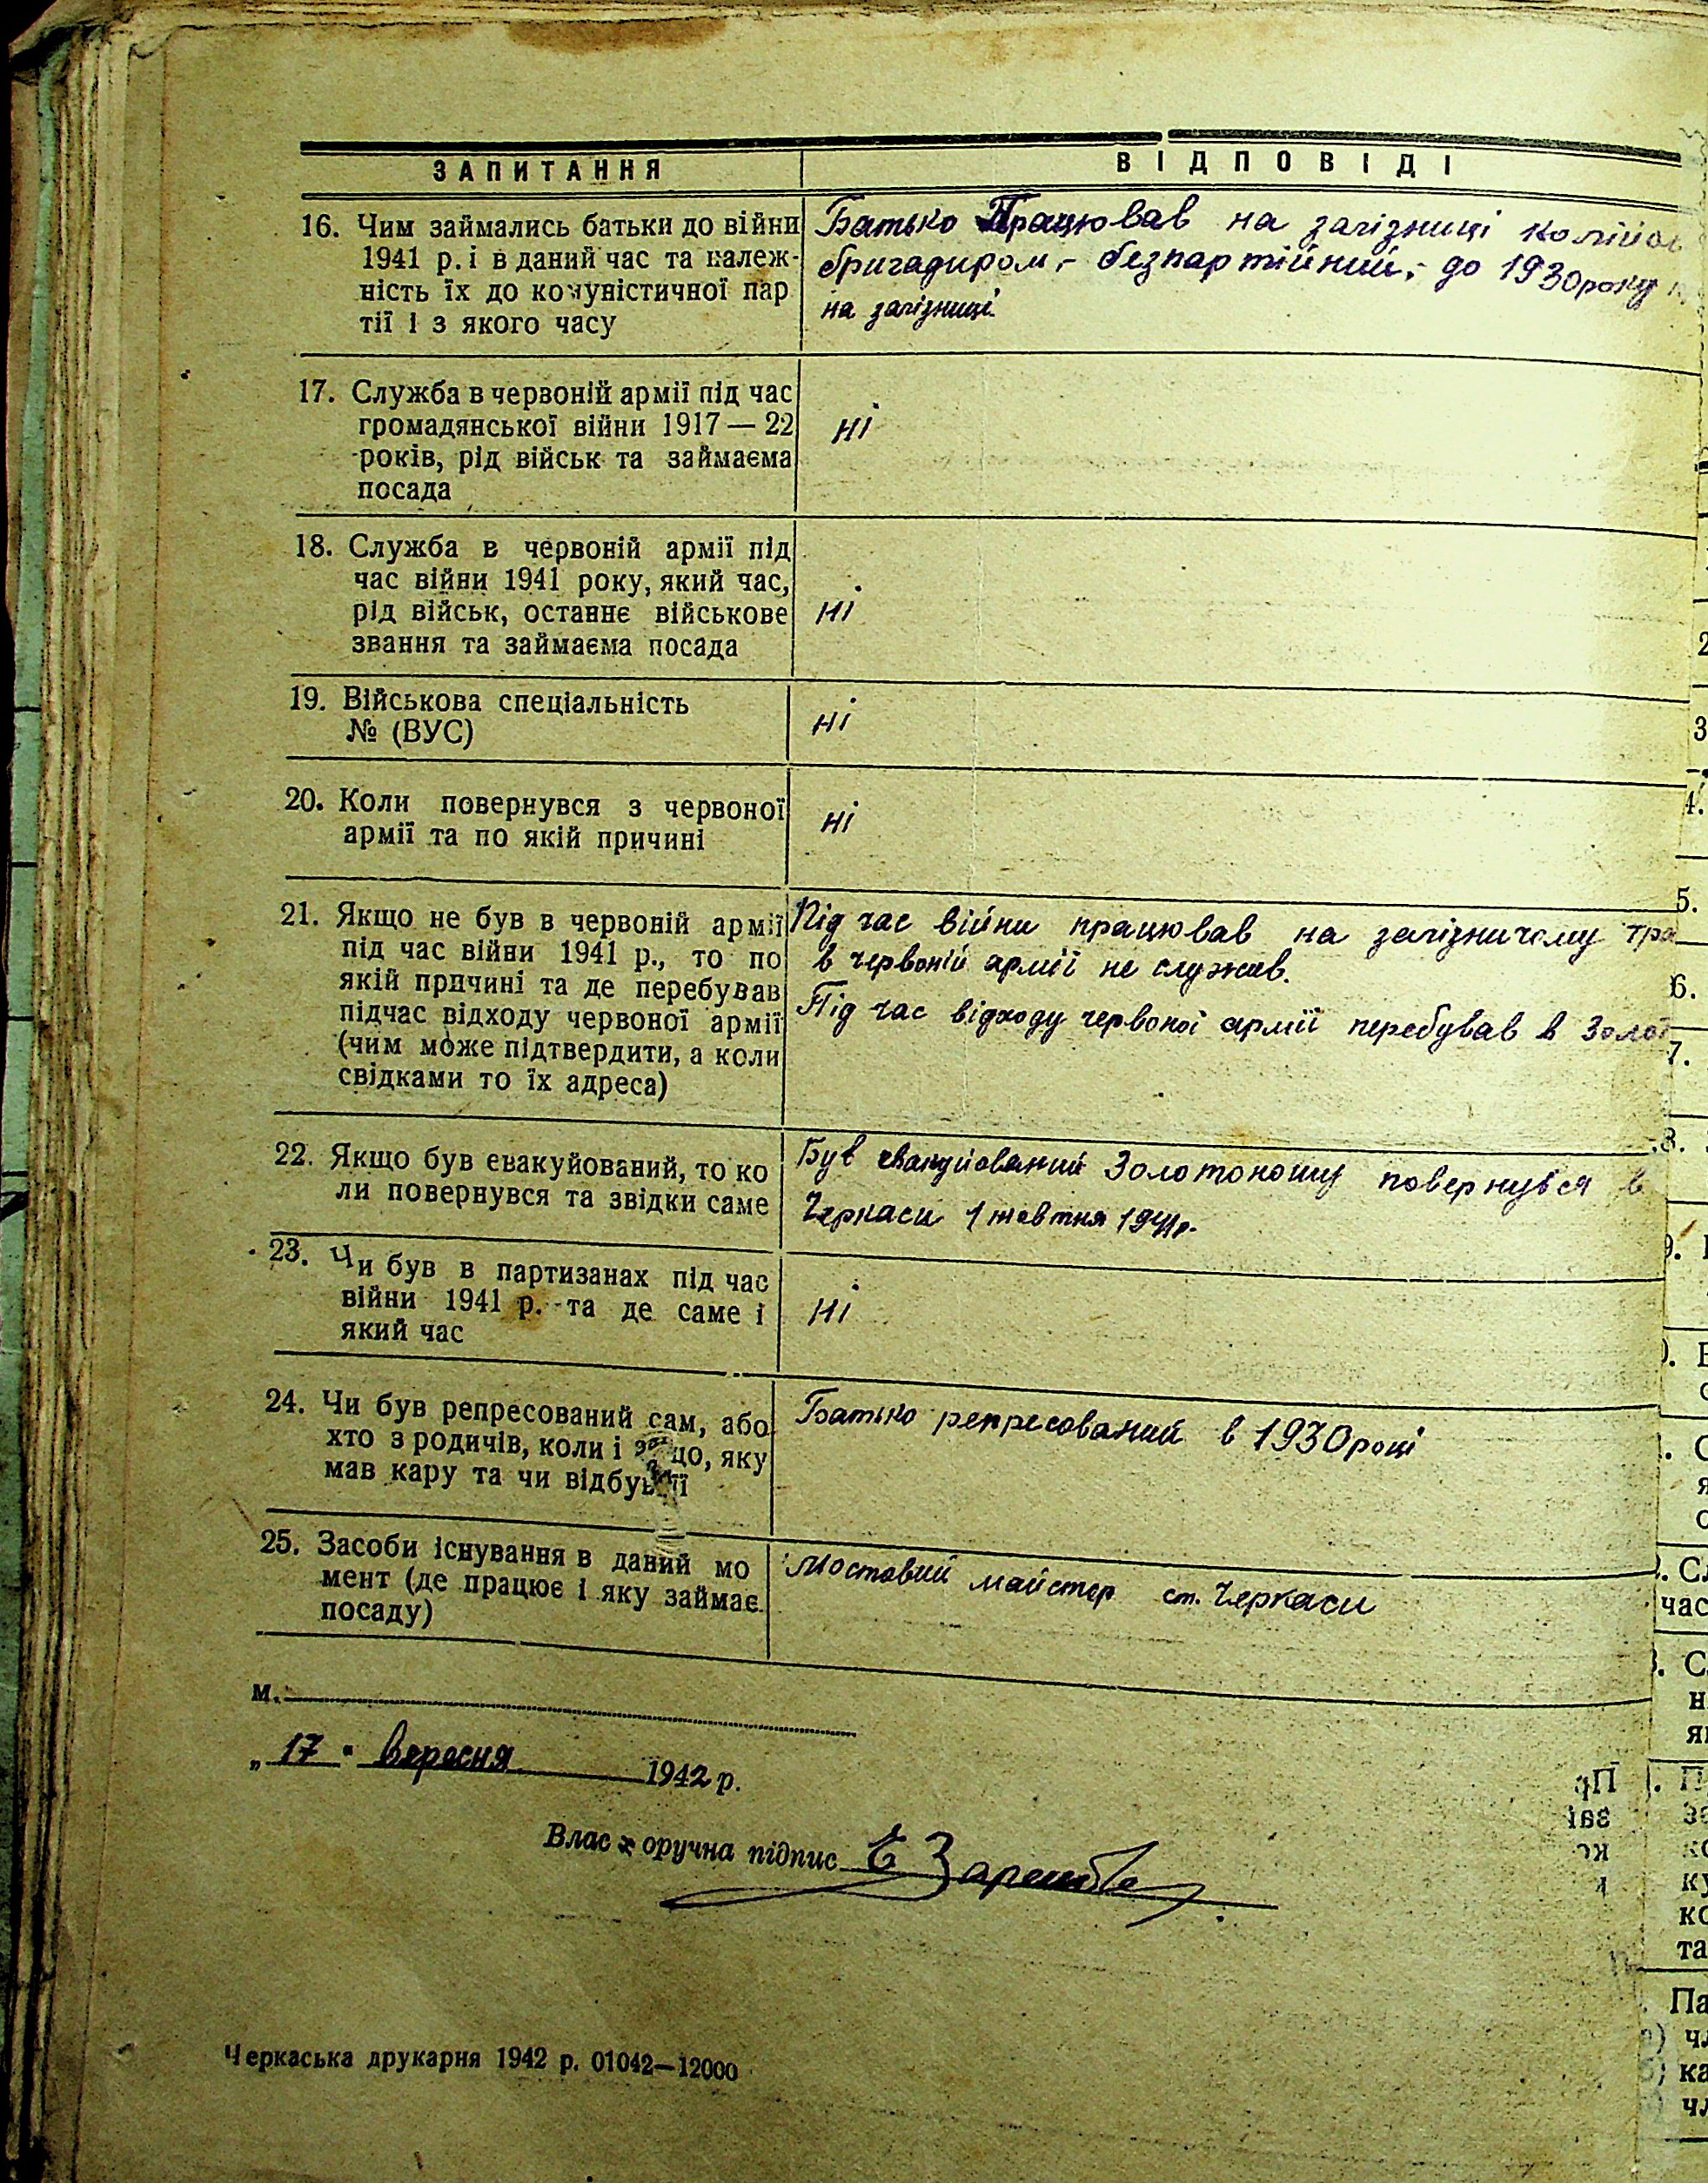 ЗАПИТАННЯ ВІДПОВІДІ
16. Чим займались батьки до війни
1941 р. і в даний час та належ-
ність їх до комуністичної пар
тії і з якого часу
Батько Працював на залізниці
бригадиром, - безпартійний, - до 1930 року
на залізниці.
17. Служба в червоній армії під час
громадянської війни 1917 — 22
років, рід військ та займаєма
посада
ні
18. Служба в червоній армії під
час війни 1941 року, який час,
рід військ, останнє військове
звання та займаєма посада
ні
19. Військова спеціальність
№ (ВУС)
ні
20. Коли повернувся з червоної
армії та по якій причині
ні
21. Якщо не був в червоній армії
під час війни 1941 р., то по
якій причині та де перебував
підчас відходу червоної армії
(чим може підтвердити, а коли
свідками то їх адреса)
Під час війни працював на залізничому тра
в червоній армії не служив.
Під час відходу червоної армії перебував в Золот
22. Якщо був евакуйований, то ко
ли повернувся та звідки саме
Був евакуйований Золотоношу повернувся в
Черкаси 1 жовтня 1941р.
23. Чи був в партизанах під час
війни 1941 р. та де саме і
який час
Ні
24. Чи був репресований сам, або
хто з родичів, коли і за що, яку
мав кару та чи відбув її
Батько репресований в 1930 році
25. Засоби існування в даний мо
мент (де працює і яку займає
посаду)
Мостовий майстер ст. Черкаси
м.
„ 17 " вересня 1942 р.
Власноручна підпис
Черкаська друкарня 1942 р. 01042—12000